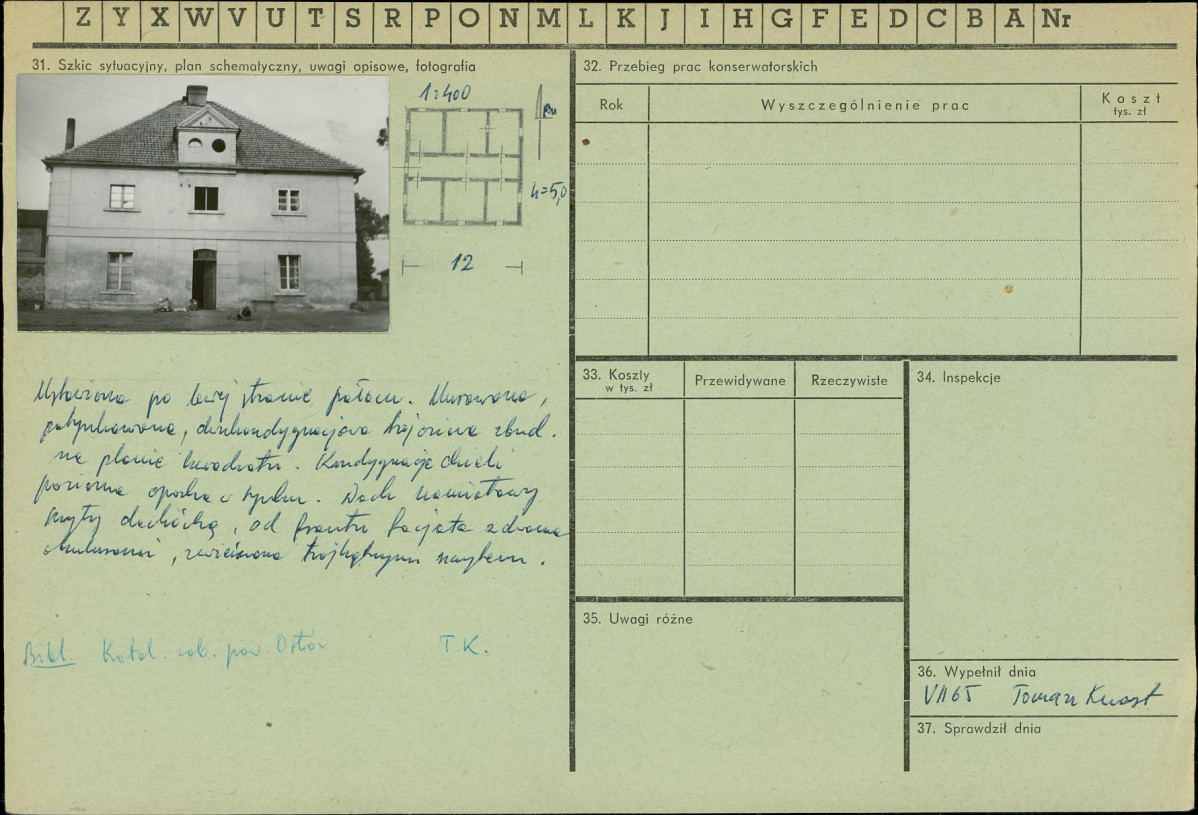 Z Y X W V U T S R P O N M L K J I H G F E D C B A Nr
31. Szkic sytuacyjny, plan schematyczny, uwagi opisowe, fotografia
1:400
h=5,0
12
po lewej stronie pałacu. Murowana,
potynkowana, dwukondygnacjowa trójosiowa zbud.
na planie kwadratu. Kondygnacje dzieli
pozioma opaska w tynku. Dach namiotowy
kryty dachówką, od frontu facjata z dwoma
okulusami, zwieńczona trójkątnym
Bibl. Katal. zab. pow. Ostów
T.K.
32. Przebieg prac konserwatorskich
Rok
Wyszczególnienie prac
Koszt
tys. zł
33. Koszty
w tys. zł
Przewidywane
Rzeczywiste
34. Inspekcje
35. Uwagi różne
36. Wypełnił dnia
VII 65 Tomasz
37. Sprawdził dnia